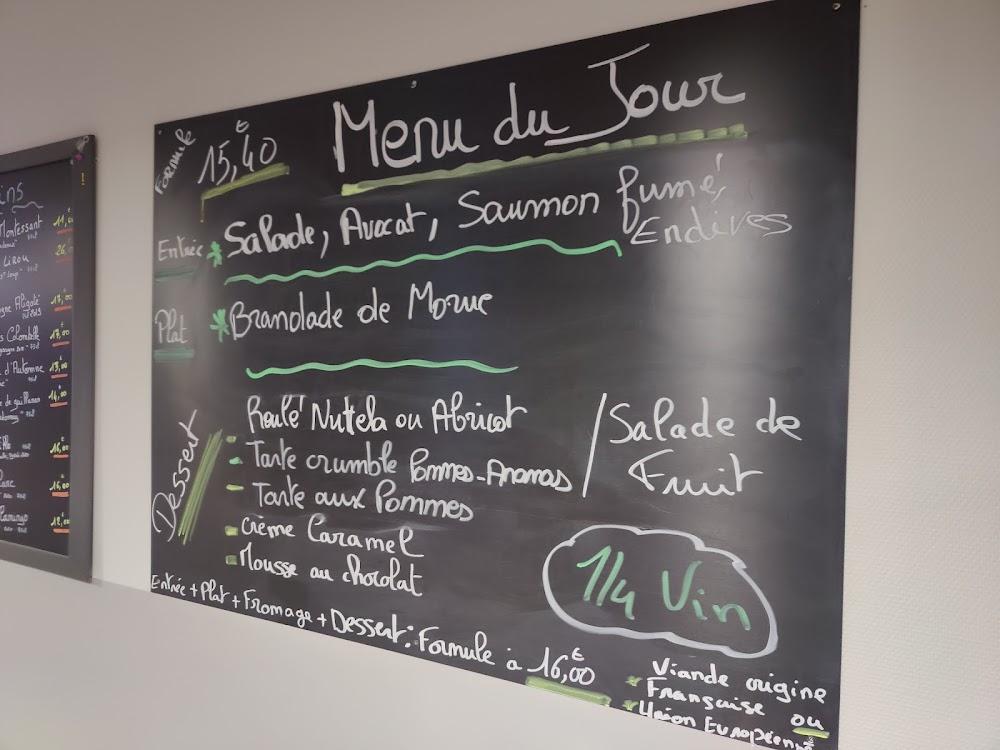 Menu du Jour
Formule 15,40 €
Entrée * Salade, Avocat, Saumon fumé,
Endives
Plat * Brandade de Morue
Dessert
Roulé Nutela ou Abricot
- Tarte crumble Pommes-Ananas
- Tarte aux Pommes
- Crème Caramel
- Mousse au chocolat
/ Salade de
Fruit
1/4 Vin
Entrée + Plat + Fromage + Dessert: Formule à 16,00 €
Viande origine
Française ou
Union Européenne
ins
Montessant
11,
Lirou
26,
Aligoté
17,00
Colombelle
17,00
d'Automne
13,00
14,00
16,00
16,00
Flamingo
12,00